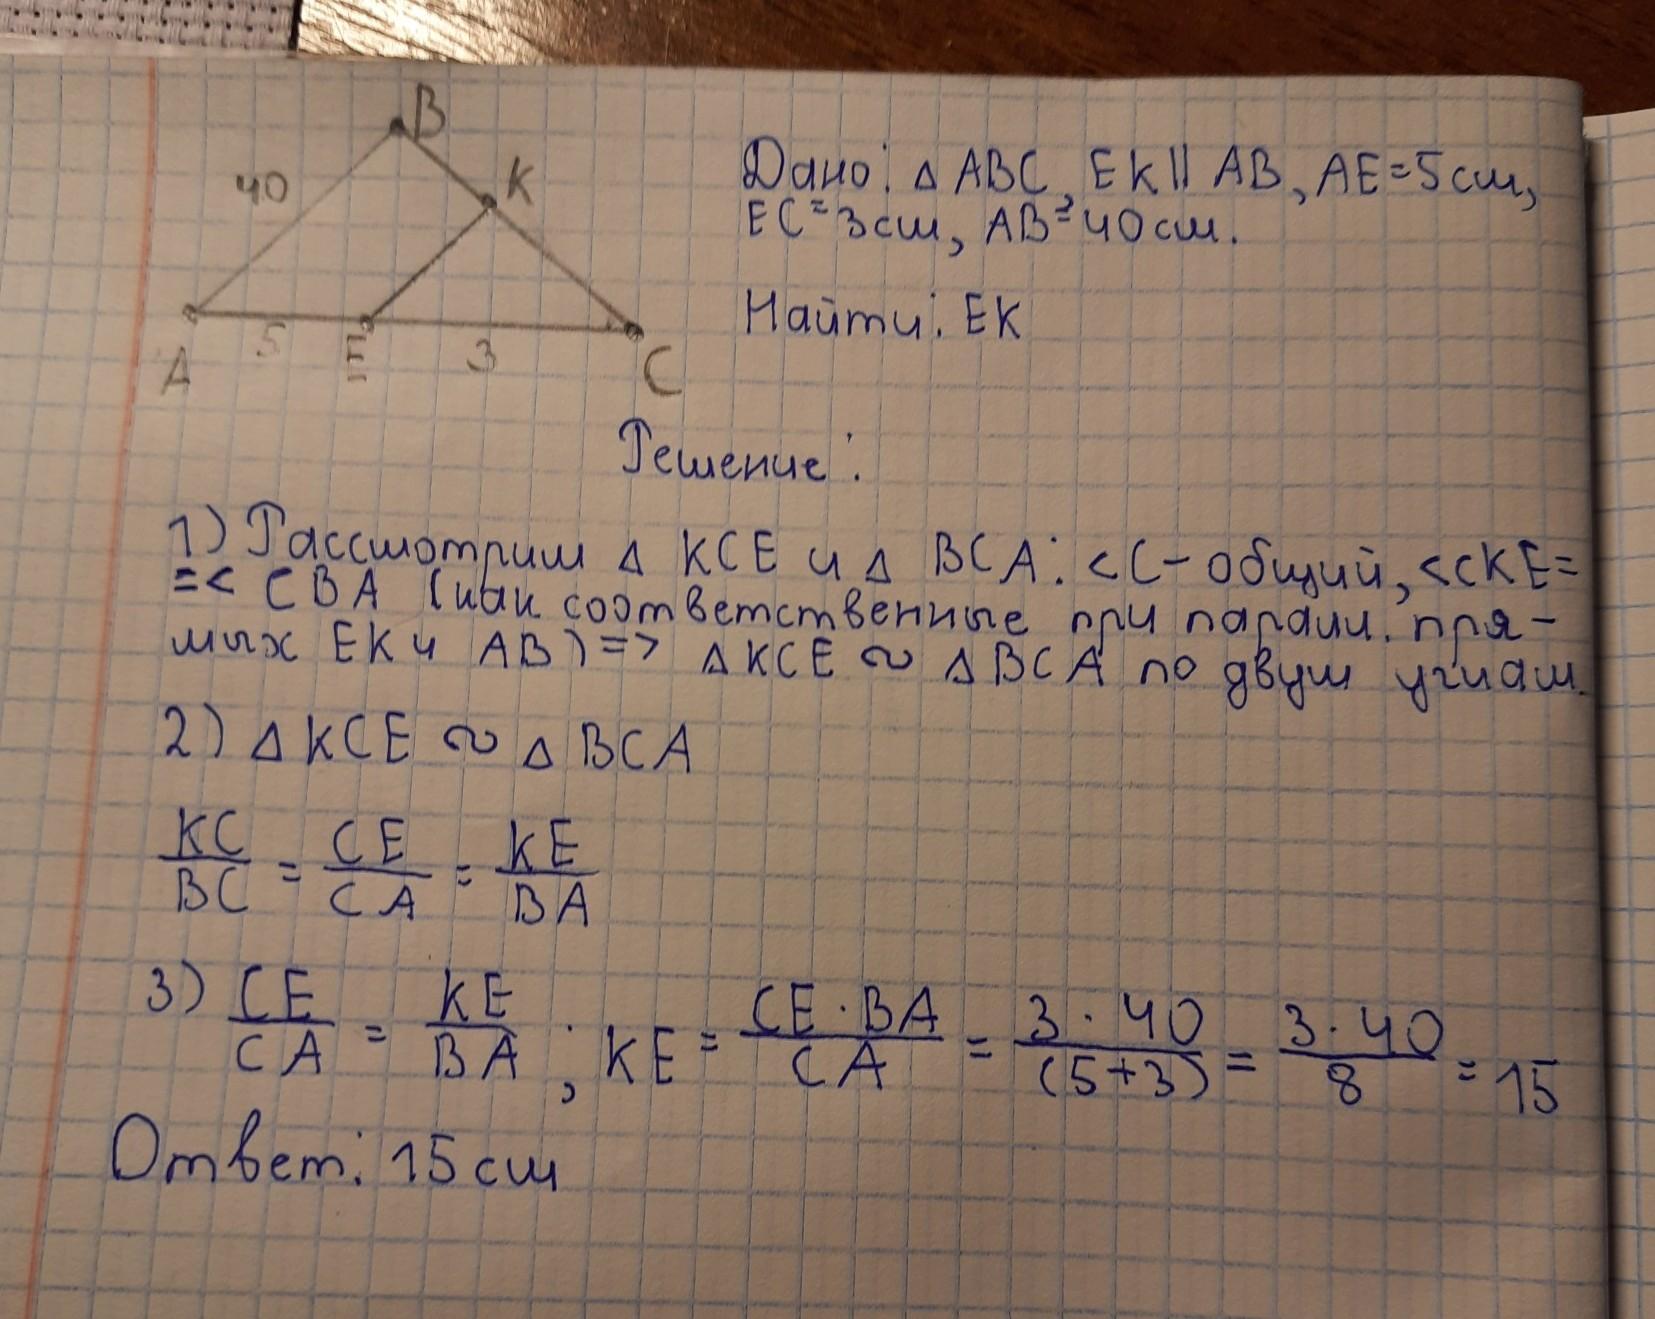 B
K
40
5
3
A
E
C
Дано: △ ABC, EK || AB, AE=5см,
EC=3см, AB=40см.
Найти: EK
Решение:
1) Рассмотрим △ KCE и △ BCA: <C- общий, <CKE=
=< CBA (как соответственные при паралл. пря-
мых EK и AB) => △KCE ∾ △BCA по двум углам.
2) △KCE ∾ △ BCA
KC/BC = CE/CA = KE/BA
3) CE/CA = KE/BA ; KE = CE · BA/CA = 3 · 40/(5+3) = 3 · 40/8 = 15
Ответ: 15см